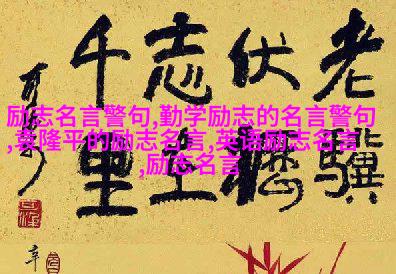 老驥
伏櫪
志在
千里
励志名言警句,勤学励志的名言警句
,袁隆平的励志名言,英语励志名言
,励志名言
辛